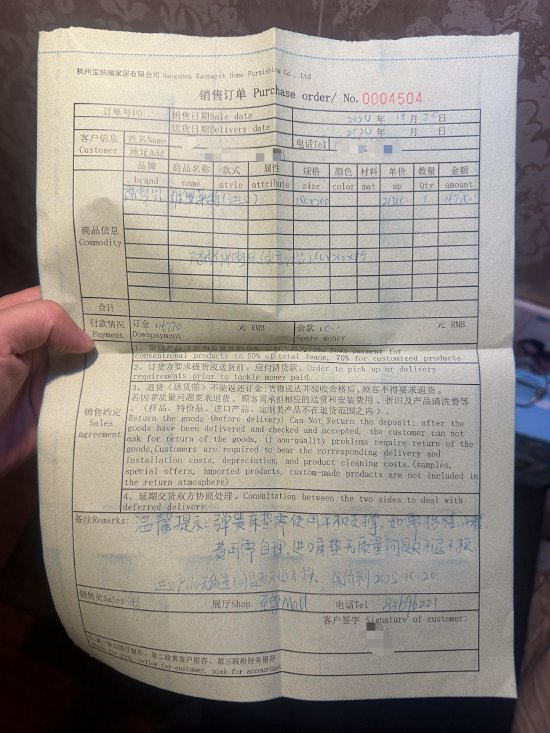 杭州宝纳瑞家居有限公司 Hangzhou Baonarui Home Furnishing Co., Ltd
销售订单 Purchase order/ No.0004504
订单号PO 销售日期Sale date 2024 年 10 月
送货日期Delivery date 2024 年 月
客户信息 Customer 姓名Name 电话Tel
地址Add
商品信息 Commodity
品牌 brand 商品名称 name 款式 style 属性 attribute 规格 size 颜色 color 材料 mat 单价 up 数量 Qty 金额 amount
180x200 1
合计
付款情况 Payment 订金: Downpayment 元 RMB 余款: Spare money 元 RMB
conventional products to 50% of total loans, 70% for customized products
2、订货方要求提货或送货前, 应付清货款。Order to pick up or delivery
requirements prior to tackle money paid.
销售约定 Sales agreement
3、退货（送货前）不能返还订金;货物送达并验收合格后,顾客不得要求退货。
若因非质量问题要求退货, 顾客需承担相应的送货和安装费用、折旧及产品清洗费等
。(样品、特价品、进口产品、定制类产品不在退货范围之内)。
Return the goods (before delivery) Can Not Return the deposit; after the
goods have been delivered and checked and accepted, the customer can not
ask for return of the goods, if non-quality problems require return of the
goods,Customers are required to bear the corresponding delivery and
installation costs, depreciation, and product cleaning costs.(samples,
special offers, imported products, custom-made products are not included in
the return atmosphere)
4、延期交货双方协商处理。Consultation between the two sides to deal with
deferred delivery.
备注Remarks: 温馨提示: 弹簧床垫需使用平板支撑, 如需
费用需自理, 进口床垫无质量问题不退不换
进口产品无质量问题不退不换、保价到2025.10.20
销售类Sales 展厅Shop Mall 电话Tel 83696221
客户签字 Signature of customer:
注:第一联白展厅留存, 第二联黄客户留存, 第三联粉财务留存
yellow for customer, pink for accountant